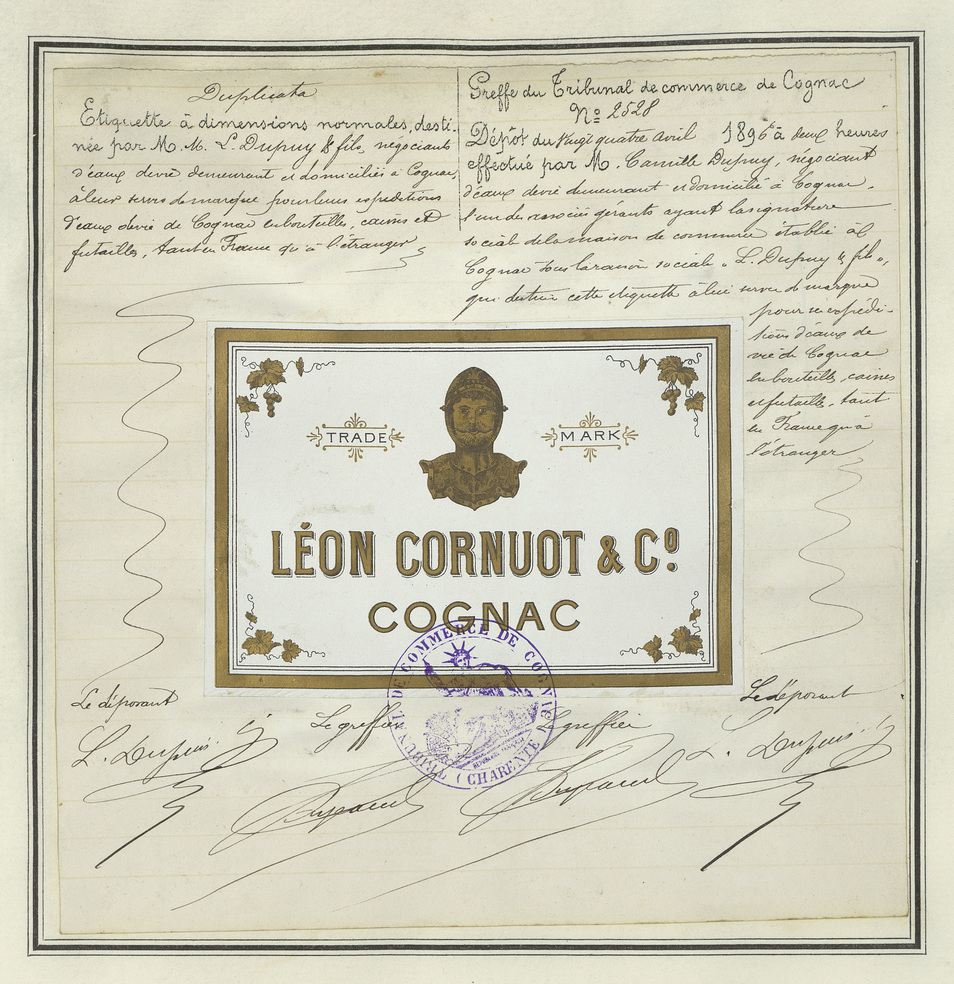 Duplicata
Etiquette à dimensions normales, desti-
née par M. M. L. Dupuy & fils, négociants
d'eaux devie demeurant et domiciliés à Cognac,
à leur servir de marque pour leurs expéditions
d'eaux devie de Cognac en bouteilles, caisses et
futailles, tant en France qu'à l'étranger
Greffe du Tribunal de commerce de Cognac
Nº 2528
Dépôt du vingt quatre avril 1896 à deux heures
effectué par M. Camille Dupuy, négociant
d'eaux devie demeurant et domicilié à Cognac,
l'un des associés gérants ayant la signature
sociale de la maison de commerce établie à
Cognac sous la raison sociale « L. Dupuy & fils »,
qui destine cette étiquette à lui servir de marque
pour ses expédi-
tions d'eaux de
vie de Cognac
en bouteilles, caisses
et futailles, tant
en France qu'à
l'étranger
TRADE MARK
LÉON CORNUOT & Cº
COGNAC
TRIBUNAL DE COMMERCE DE COGNAC
(CHARENTE)
Le déposant
Le greffier
Le greffier
Le déposant
L. Dupuis
L. Dupuis